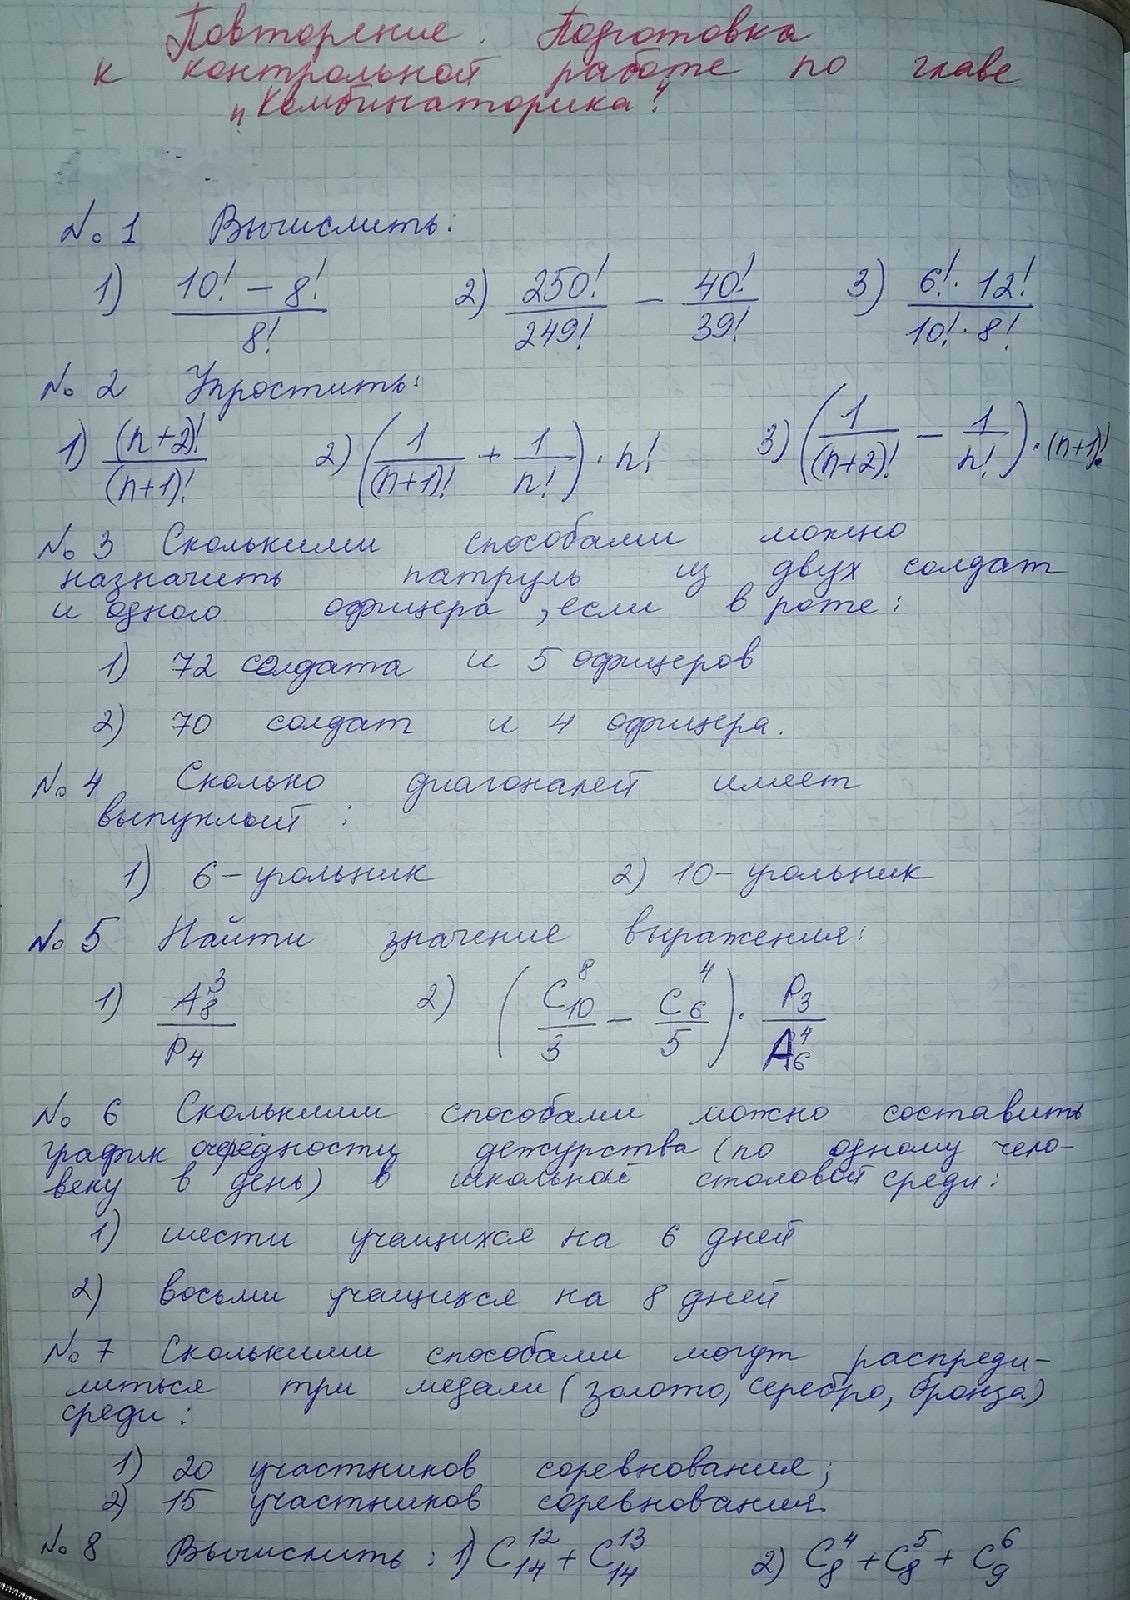 Повторение. Подготовка
к контрольной работе по главе
„Комбинаторика".
№ 1 Вычислить:
1) (10! − 8!)/8! 2) 250!/249! − 40!/39! 3) (6! · 12!)/(10! · 8!)
№ 2 Упростить:
1) (n+2)!/(n+1)! 2) (1/(n+1)! + 1/n!) · n! 3) (1/(n+2)! − 1/n!) · (n+1)!
№ 3 Сколькими способами можно
назначить патруль из двух солдат
и одного офицера, если в роте:
1) 72 солдата и 5 офицеров
2) 70 солдат и 4 офицера.
№ 4 Сколько диагоналей имеет
выпуклый:
1) 6-угольник 2) 10-угольник
№ 5 Найти значение выражения:
1) A₈³/P₄ 2) (C₁₀⁸/3 − C₆⁴/5) · P₃/A₆⁴
№ 6 Сколькими способами можно составить
график очерёдности дежурства (по одному чело-
веку в день) в школьной столовой среди:
1) шести учащихся на 6 дней
2) восьми учащихся на 8 дней
№ 7 Сколькими способами могут распреди-
литься три медали (золото, серебро, бронза)
среди:
1) 20 участников соревнования;
2) 15 участников соревнования.
№ 8 Вычислить: 1) C₁₄¹² + C₁₄¹³ 2) C₈⁴ + C₈⁵ + C₉⁶